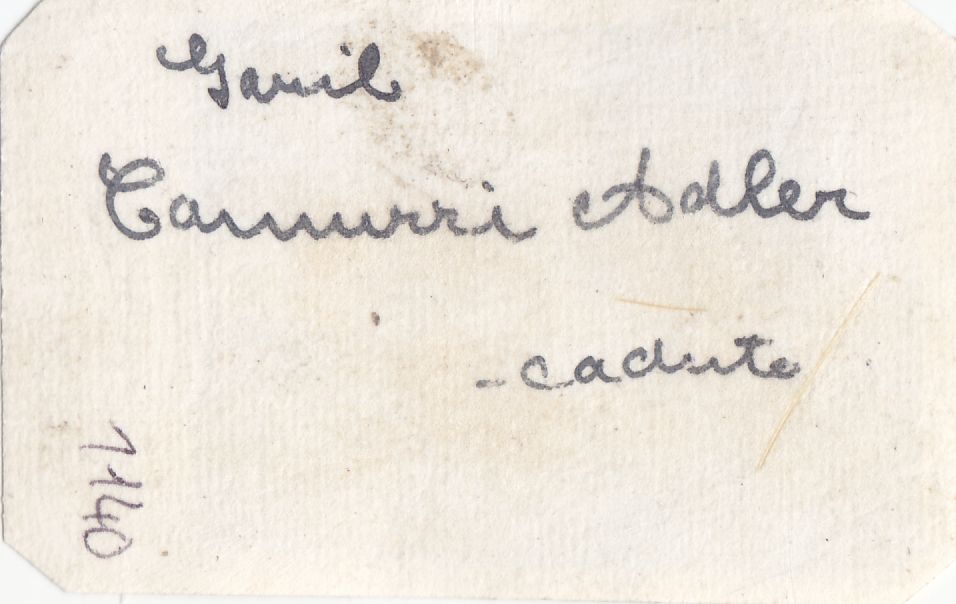 Garib
Camurri Adler
- caduto
1140